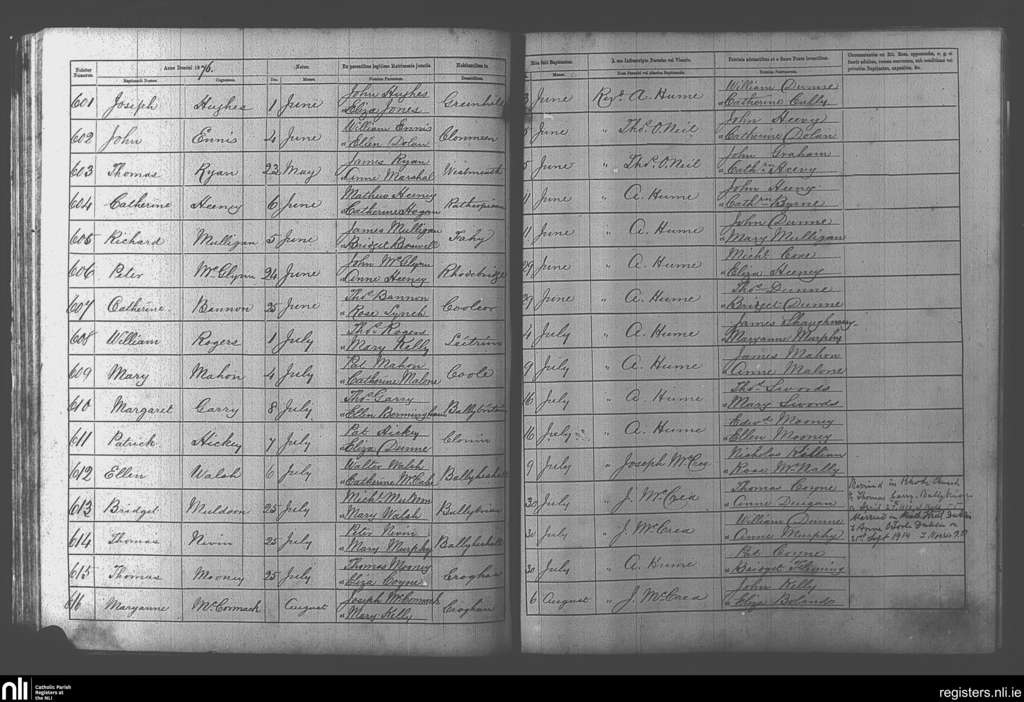 Folster Numerus. Anno Domini 1876. Natus Ex parentibus legitime Matrimonio junctis Habitantibus in
Baptizandi Nomen Cognomen Die. Mensis. Nomina Parentum. Domicilium.
Die fuit Baptizatus. A me Infrascripto Parocho vel Vicario. Patrinis admotibus et a Sacro Fonte levantibus.
Mensis. Nom Parochi vel alterius Baptizantis. Nomina Patrinorum.
601 Joseph Hughes 1 June John Hughes Eliza Jones Greenhills June Revd. A. Hume William Dunne Catherine Cully
602 John Ennis 4 June William Ennis Ellen Dolan Clonmeen 5 June " Thos. O'Neil John Heevy Catherine Dolan
603 Thomas Ryan 22 May James Ryan Anne Marshal Westmeath 5 June " Thos. O'Neil John Graham Cathne Heevy
604 Catherine Heeney 6 June Mathew Heeney Catherine Hogan 11 June " A. Hume John Heevy Cathne Byrne
605 Richard Mulligan 5 June James Mulligan Bridget Fahy 11 June " A. Hume John Dunne Mary Mulligan
606 Peter McGlynn 24 June John McGlynn Anne Heeney Rhodebridge 29 June " A. Hume Michl. Eliza Heeney
607 Catherine Bannon 25 June Thos. Bannon Rose Lynch Coolcor June " A. Hume Thos. Dunne Bridget Dunne
608 William Rogers 1 July Thos. Rogers Mary Kelly Leitrim 4 July " A. Hume James Shaughnessy Maryanne Murphy
609 Mary Mahon 4 July Pat Mahon Catherine Malone Coole 9 July " A. Hume James Mahon Anne Malone
610 Margaret Garry 8 July Thos. Garry Ellen Bermingham Ballybrittain 16 July " A. Hume Thos. Swords Mary Swords
611 Patrick Hickey 7 July Pat Hickey Eliza Dunne Clonin 16 July " A. Hume Edwd. Mooney Ellen Mooney
612 Ellen Walsh 6 July Walter Walsh Catherine McCabe Ballyheshell 9 July " Joseph McCrea Nicholas Rose McNally
613 Bridget Muldoon 25 July Michl. Muldoon Mary Walsh 30 July " J. McCrea Thomas Coyne Anne Duigan Married in Church to Thomas Garry
614 Thomas Nivin 25 July Peter Nivin Mary Murphy Ballyheshell 30 July " J. McCrea William Dunne Annie Murphy Married in Dublin to Anne O'Toole Dublin on 21st Sept 1914
615 Thomas Mooney 25 July Thomas Mooney Eliza Coyne Croghan 30 July " A. Hume Pat Coyne Bridget Fleming
616 Maryanne McCormack August Joseph McCormack Mary Kelly Croghan 6 August " J. McCrea John Kelly Eliza Bolands
nli Catholic Parish
Registers at
the NLI
registers.nli.ie